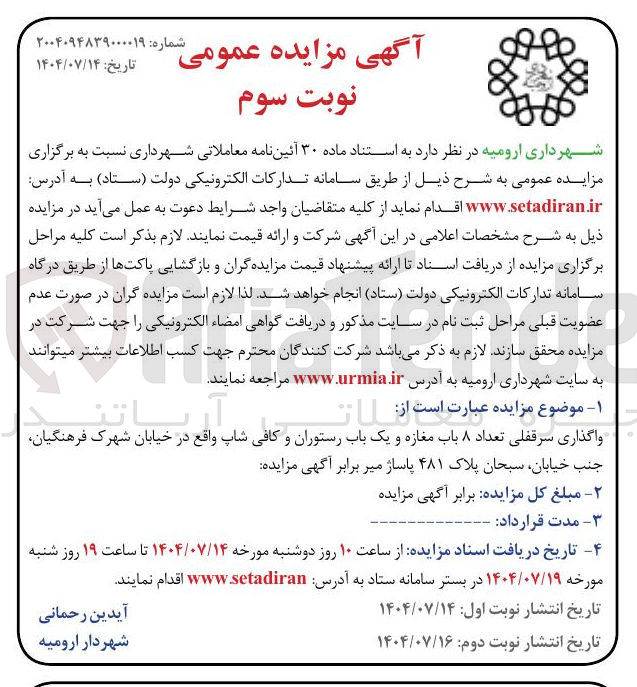 شماره: ۲۰۰۴۰۹۴۸۳۹۰۰۰۰۱۹
تاریخ: ۱۴۰۴/۰۷/۱۴
آگهی مزایده عمومی
نوبت سوم
شهرداری ارومیه در نظر دارد به استناد ماده ۳۰ آئین‌نامه معاملاتی شهرداری نسبت به برگزاری
مزایده عمومی به شرح ذیل از طریق سامانه تدارکات الکترونیکی دولت (ستاد) به آدرس:
www.setadiran.ir اقدام نماید از کلیه متقاضیان واجد شرایط دعوت به عمل می‌آید در مزایده
ذیل به شرح مشخصات اعلامی در این آگهی شرکت و ارائه قیمت نمایند. لازم بذکر است کلیه مراحل
برگزاری مزایده از دریافت اسناد تا ارائه پیشنهاد قیمت مزایده‌گران و بازگشایی پاکت‌ها از طریق درگاه
سامانه تدارکات الکترونیکی دولت (ستاد) انجام خواهد شد. لذا لازم است مزایده گران در صورت عدم
عضویت قبلی مراحل ثبت نام در سایت مذکور و دریافت گواهی امضاء الکترونیکی را جهت شرکت در
مزایده محقق سازند. لازم به ذکر می‌باشد شرکت کنندگان محترم جهت کسب اطلاعات بیشتر میتوانند
به سایت شهرداری ارومیه به آدرس www.urmia.ir مراجعه نمایند.
۱- موضوع مزایده عبارت است از:
واگذاری سرقفلی تعداد ۸ باب مغازه و یک باب رستوران و کافی شاپ واقع در خیابان شهرک فرهنگیان،
جنب خیابان، سبحان پلاک ۴۸۱ پاساژ میر برابر آگهی مزایده:
۲- مبلغ کل مزایده: برابر آگهی مزایده
۳- مدت قرارداد: -------------
۴- تاریخ دریافت اسناد مزایده: از ساعت ۱۰ روز دوشنبه مورخه ۱۴۰۴/۰۷/۱۴ تا ساعت ۱۹ روز شنبه
مورخه ۱۴۰۴/۰۷/۱۹ در بستر سامانه ستاد به آدرس: www.setadiran اقدام نمایند.
تاریخ انتشار نوبت اول: ۱۴۰۴/۰۷/۱۴
تاریخ انتشار نوبت دوم: ۱۴۰۴/۰۷/۱۶
آیدین رحمانی
شهردار ارومیه